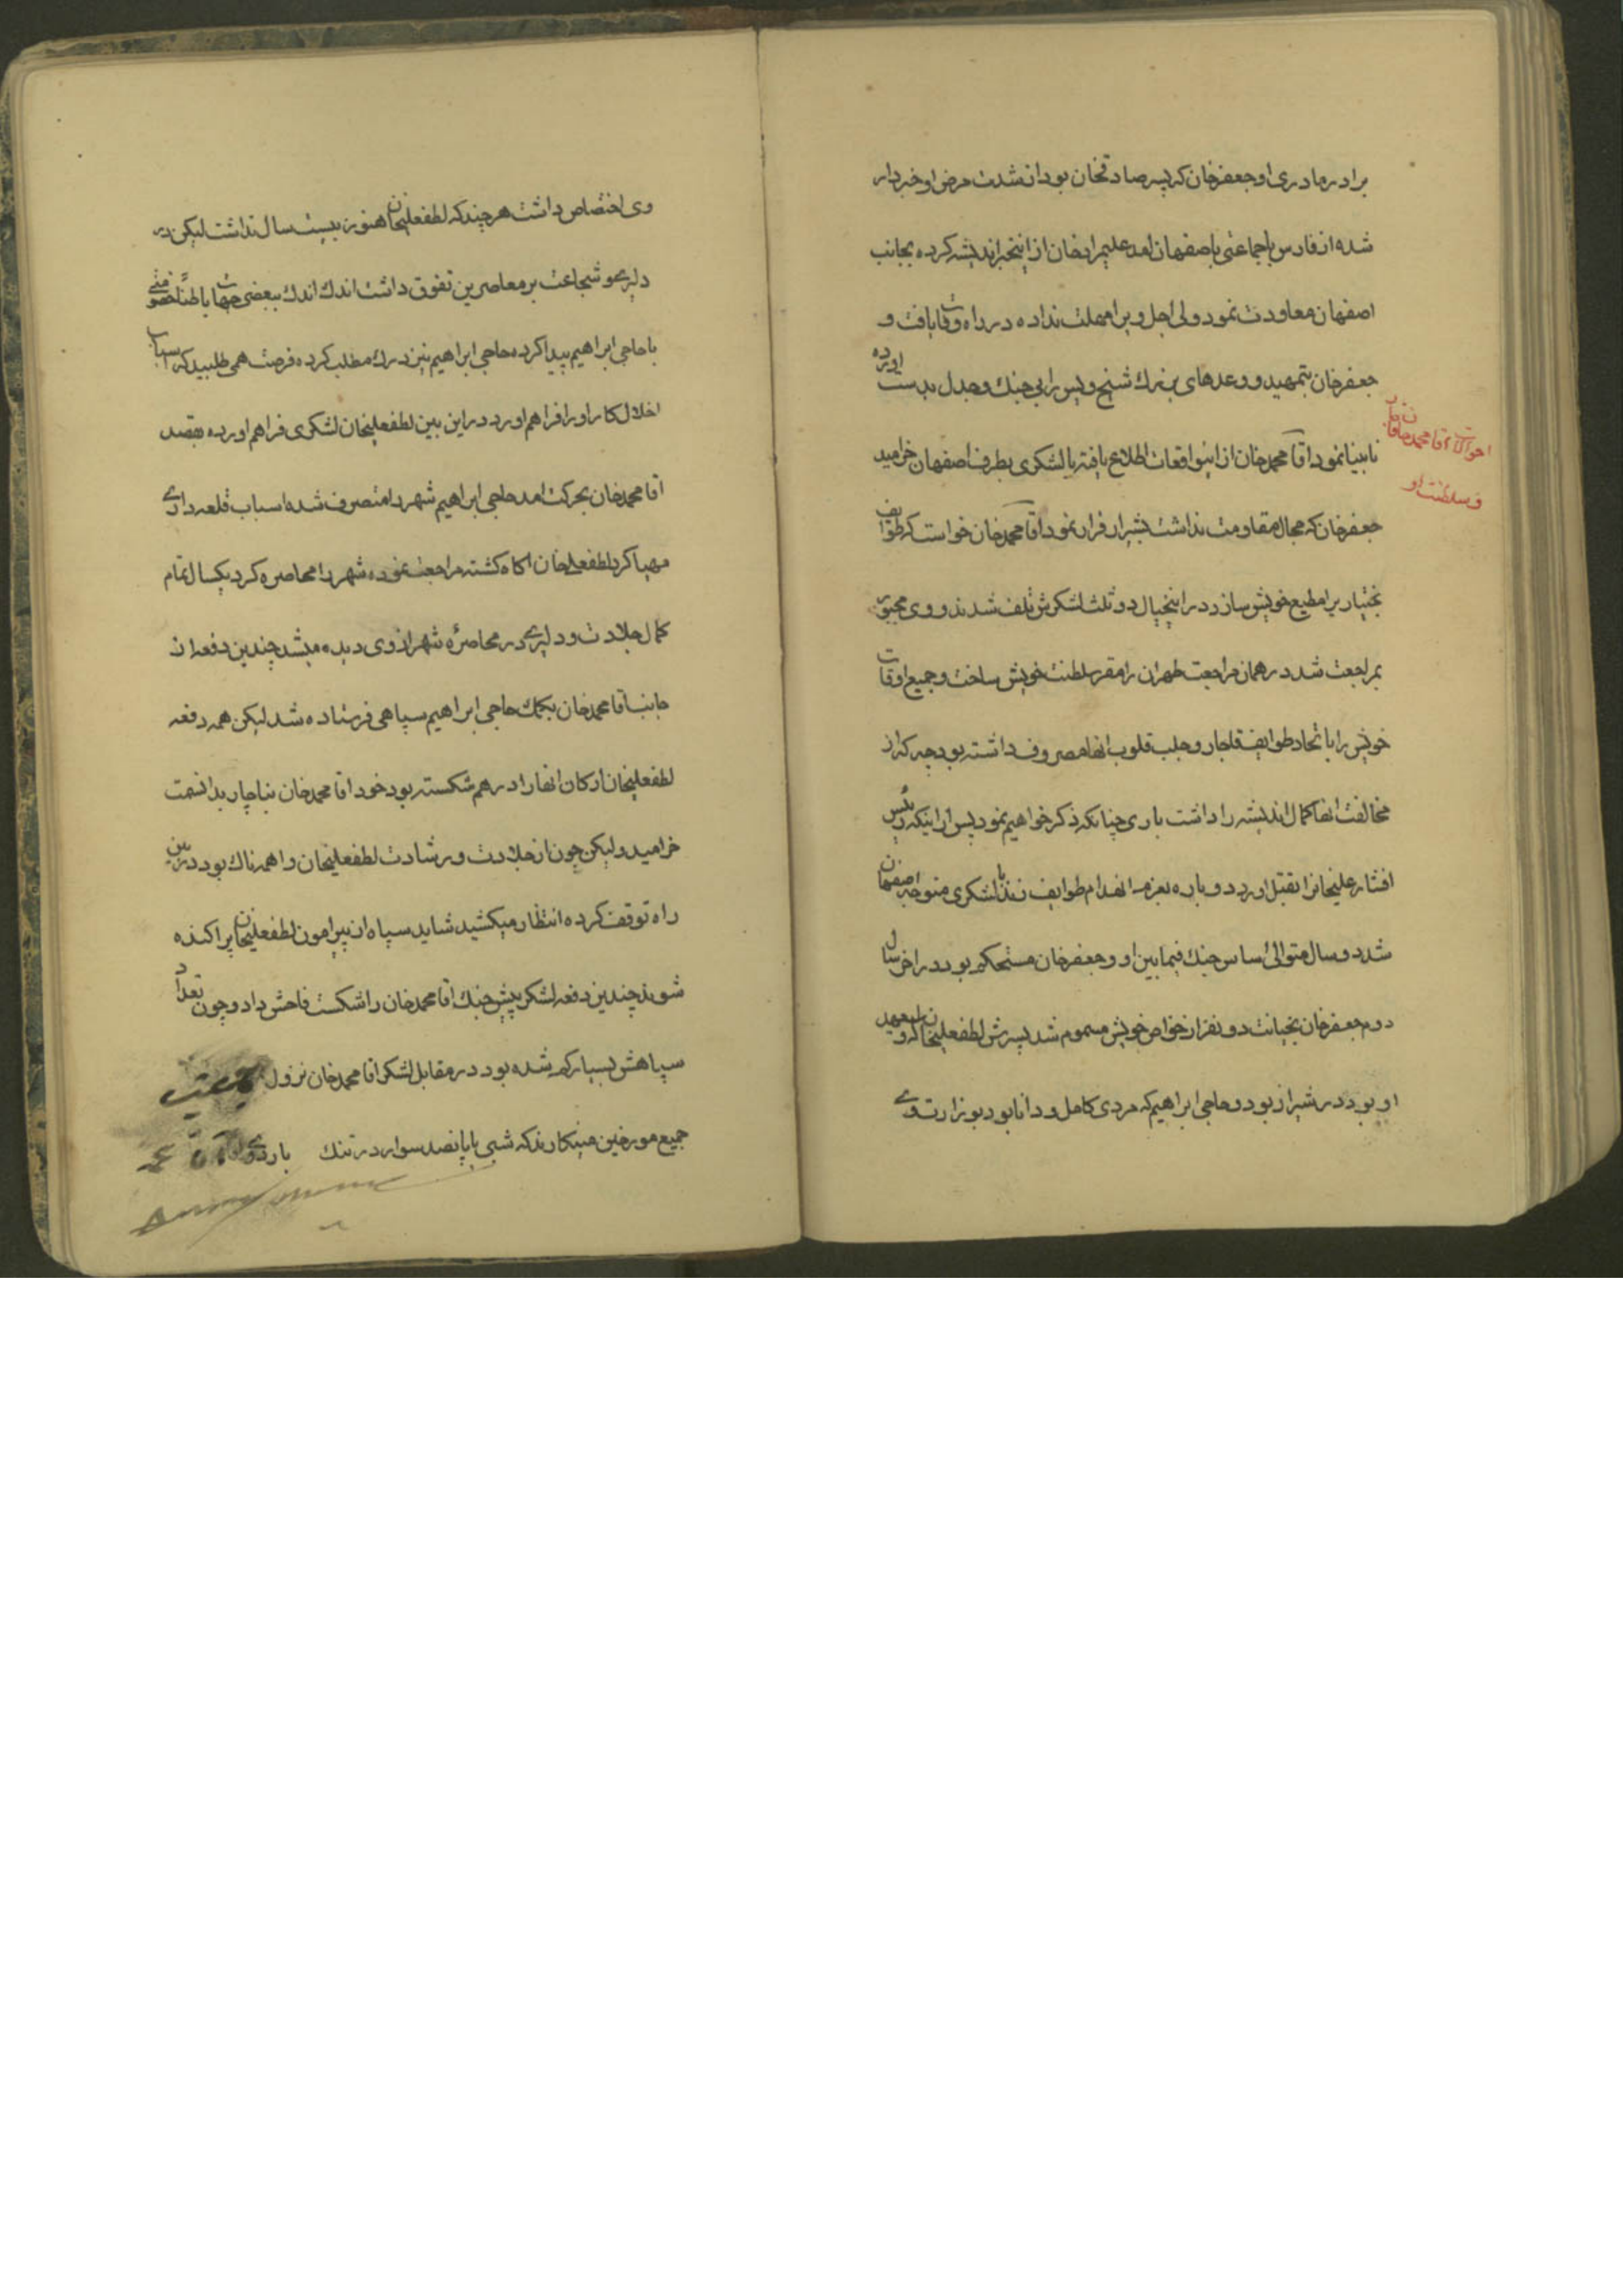 برادر مادری او جعفرخان که پسر صادقخان بود از شدت مرض او خبردار
شده از فارس با جماعتی باصفهان امد علیمرادخان از اینخبر اندیشه کرده بجانب
اصفهان معاودت نمود ولی اجل ویرا مهلت نداده در راه وفات یافت و
جعفرخان بتمهید و وعدهای بزرک شیخ ویس را بی جنك و جدل بدست اورده
نابینا نمود اقا محمدخان از اینواقعات اطلاع یافته با لشکری بطرف اصفهان خرامید
احوالات اقا محمد خان قاجار
و سلطنت او
جعفرخان که مجال مقاومت نداشت بشیراز فرار نمود اقا محمدخان خواست که طوایف
بختیاریرا مطیع خویش سازد در اینخیال دو ثلث لشکرش تلف شدند و وی مجبور
بمراجعت شد در همان مراجعت طهران را مقر سلطنت خویش ساخت و جمیع اوقات
خویش را باتحاد طوایف قاجار و جلب قلوب انها مصروف داشته بود چه که از
مخالفت انها کمال اندیشه را داشت باری چنانکه ذکر خواهیم نمود پس از اینکه رئیس
افشار علیخانرا بقتل اورد دوباره بعزم انهدام طوایف زند با لشکری متوجه اصفهان
شد دو سال متوالی اساس جنك فیما بین او و جعفرخان مستحکم بود در اخر سال
دوم جعفرخان بخیانت دو نفر از خواص خویش مسموم شد پسرش لطفعلیخان که ولیعهد
او بود در شیراز بود و حاجی ابراهیم که مردی کامل و دانا بود بوزارت وی
وی اختصاص داشت هر چند که لطفعلیخان هنوز بیست سال نداشت لیکن در
دلیری و شجاعت بر معاصرین تفوق داشت اندك اندك ببعضی جهات باطناً خصومتی
با حاجی ابراهیم پیدا کرده حاجی ابراهیم نیز درك مطلب کرده فرصت همی طلبید که اسباب
اخلال کار او را فراهم اورد در این بین لطفعلیخان لشکری فراهم اورده بقصد
اقا محمدخان بحرکت امد حاجی ابراهیم شهر را متصرف شده اسباب قلعه داری
مهیا کرد لطفعلیخان اکاه کشته مراجعت نموده شهر را محاصره کرد یکسال تمام
کمال جلادت و دلیری در محاصرهٔ شهر از وی دیده میشد چندین دفعه از
جانب اقا محمدخان بکمك حاجی ابراهیم سپاهی فرستاده شد لیکن همه دفعه
لطفعلیخان ارکان انها را در هم شکسته بود خود اقا محمدخان بناچار بدانسمت
خرامید ولیکن چون از جلادت و رشادت لطفعلیخان واهمه ناك بود در بین
راه توقف کرده انتظار میکشید شاید سپاه از پیرامون لطفعلیخان پراکنده
شوند چندین دفعه لشکر پیش جنك اقا محمدخان را شکست فاحش داد و چون تعداد
سپاهش بسیار کم شده بود در مقابل لشکر اقا محمدخان نزول
جمیع مورخین مینکارند که شبی با پانصد سوار در تنك باردوی